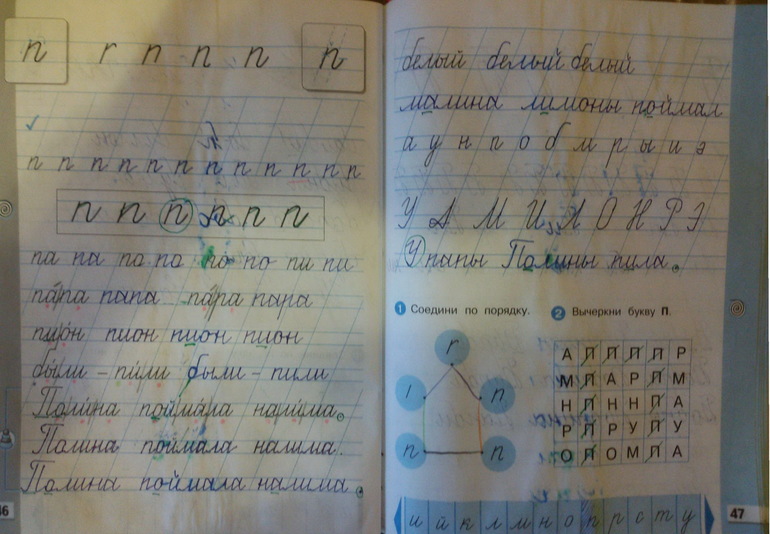 п г п п п п
п п п п п п п п п п п п
п п п п п п
па па по по по по пи пи
па́ра папа па́ра пара
пио́н пион пион пион
бы́ли – пи́ли были – пили
Поли́на пойма́ла нали́ма.
Полина поймала налима.
Полина поймала налима.
46
белый белый белый
малина лимоны поймал
а у н п о б м р ы и э
У А М И Л О Н Р Э
У папы Полины пила.
1 Соедини по порядку.
2 Вычеркни букву П.
г
п
п
п
А П П П Л Р
М Л А Р Л М
Н П Н Н П А
Р Л Р У Л У
О П О М Л А
и й к л м н о п р с т у
47